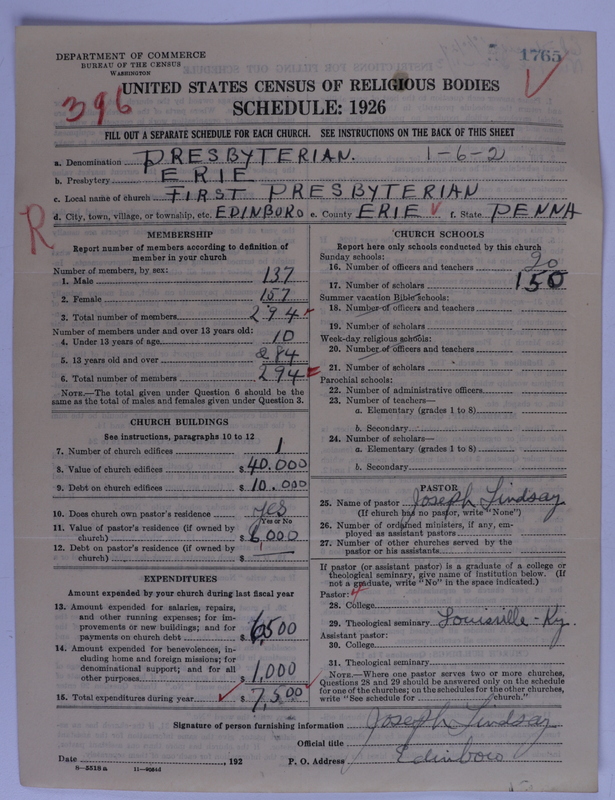 DEPARTMENT OF COMMERCE
BUREAU OF THE CENSUS
WASHINGTON
1765
396
UNITED STATES CENSUS OF RELIGIOUS BODIES
SCHEDULE: 1926
FILL OUT A SEPARATE SCHEDULE FOR EACH CHURCH. SEE INSTRUCTIONS ON THE BACK OF THIS SHEET
a. Denomination PRESBYTERIAN. 1-6-2
b. Presbytery ERIE
c. Local name of church FIRST PRESBYTERIAN
R
d. City, town, village, or township, etc. EDINBORO e. County ERIE f. State PENNA
MEMBERSHIP
Report number of members according to definition of
member in your church
Number of members, by sex:
1. Male 137
2. Female 157
3. Total number of members 294
Number of members under and over 13 years old:
4. Under 13 years of age 10
5. 13 years old and over 284
6. Total number of members 294
NOTE.—The total given under Question 6 should be
the same as the total of males and females given under Question 3.
CHURCH BUILDINGS
See instructions, paragraphs 10 to 12
7. Number of church edifices 1
8. Value of church edifices $ 40.000
9. Debt on church edifices $ 10.000
10. Does church own pastor's residence yes
Yes or No
11. Value of pastor's residence (if owned by
church) $ 6,000
12. Debt on pastor's residence (if owned by
church) $
EXPENDITURES
Amount expended by your church during last fiscal year
13. Amount expended for salaries, repairs,
and other running expenses; for im-
provements or new buildings; and for
payments on church debt $ 6500
14. Amount expended for benevolences, in-
cluding home and foreign missions; for
denominational support; and for all
other purposes $ 1,000
15. Total expenditures during year $ 7,500
CHURCH SCHOOLS
Report here only schools conducted by this church
Sunday schools:
16. Number of officers and teachers 20
17. Number of scholars 150
Summer vacation Bible schools:
18. Number of officers and teachers
19. Number of scholars
Week-day religious schools:
20. Number of officers and teachers
21. Number of scholars
Parochial schools:
22. Number of administrative officers
23. Number of teachers—
a. Elementary (grades 1 to 8)
b. Secondary
24. Number of scholars—
a. Elementary (grades 1 to 8)
b. Secondary
PASTOR
25. Name of pastor Joseph Lindsay
(If church has no pastor, write "None")
26. Number of ordained ministers, if any, em-
ployed as assistant pastors
27. Number of other churches served by the
pastor or his assistants
If pastor (or assistant pastor) is a graduate of a college or
theological seminary, give name of institution below. (If
not a graduate, write "No" in the space indicated.)
Pastor:
28. College
29. Theological seminary Louisville - Ky.
Assistant pastor:
30. College
31. Theological seminary
NOTE.—Where one pastor serves two or more churches,
Questions 28 and 29 should be answered only on the schedule
for one of the churches; on the schedules for the other churches,
write "See schedule for church."
Signature of person furnishing information Joseph Lindsay
Official title
Date , 192 P. O. Address Edinboro
8-5518a 11-9064d